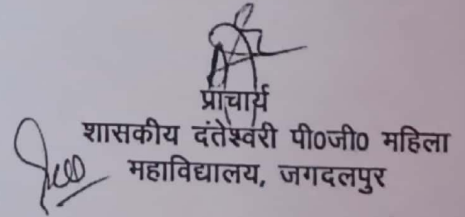 प्राचार्य
शासकीय दंतेश्वरी पी०जी० महिला
महाविद्यालय, जगदलपुर